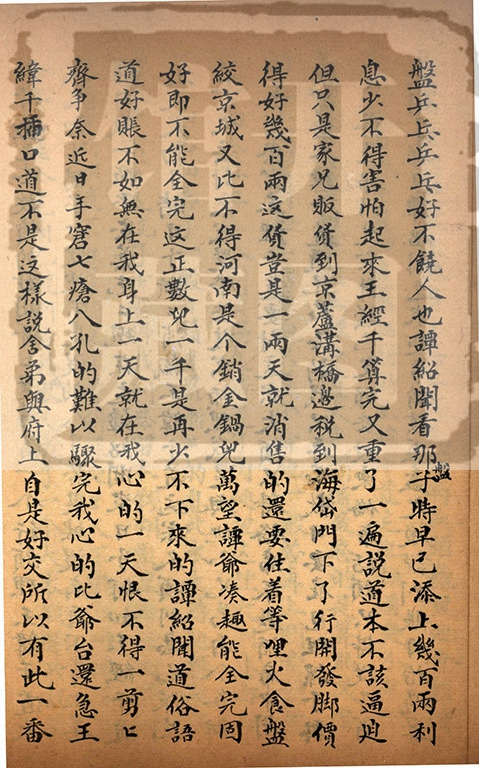 盤乒乓乒乓好不饒人也譚紹聞看那盤子時早已添上幾百兩利
息少不得害怕起來王經千算完又重了一遍說道本不該逼迫
但只是家兄販貨到京蘆溝橋邊稅到海岱門下了行開發脚價
得好幾百兩這貨豈是一兩天就消售的還要住着等哩火食盤
絞京城又比不得河南是个銷金鍋兒萬望譚爺凑趣能全完固
好即不能全完這正數兒一千是再少不下來的譚紹聞道俗語
道好賬不如無在我身上一天就在我心的一天恨不得一剪匕
齊爭奈近日手窘七瘡八孔的難以驟完我心的比爺台還急王
緯千插口道不是这樣説舍弟與府上自是好交所以有此一番